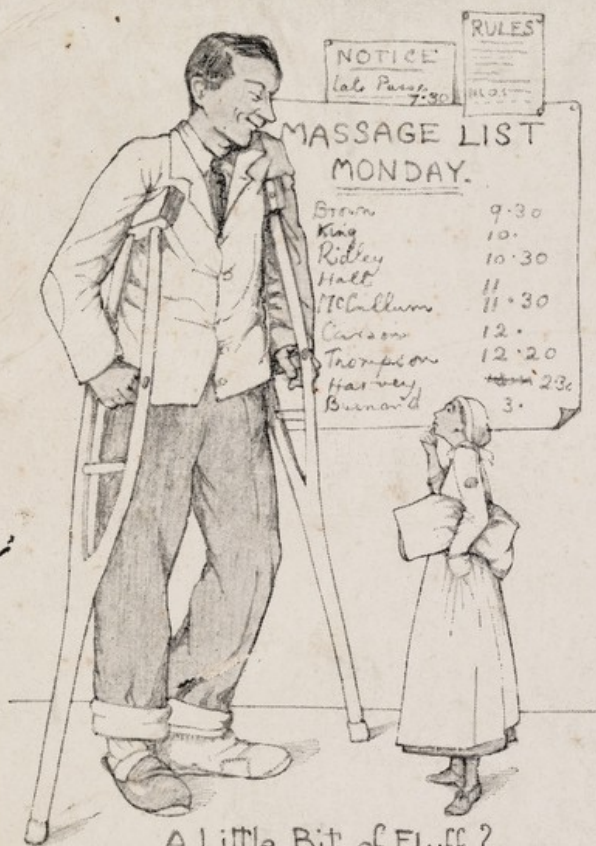 NOTICE
Late Pass.
7·30
RULES
MASSAGE LIST
MONDAY.
Brown 9·30
King 10·
Ridley 10·30
Hatt 11
McCullum 11·30
Carson 12·
Thompson 12·20
Harvey 2·30
Burnand 3·
A Little Bit of Fluff?